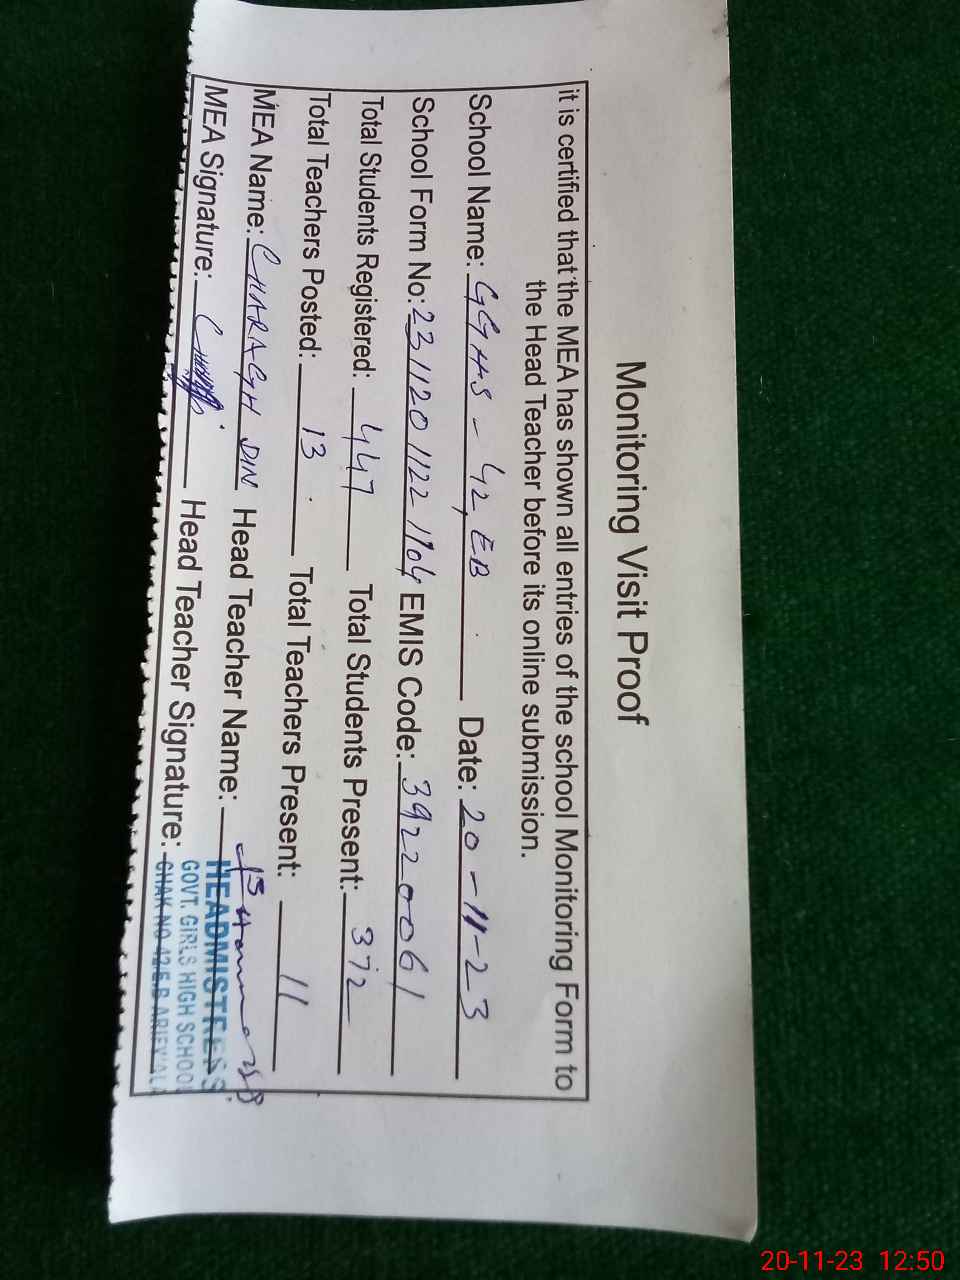 Monitoring Visit Proof
it is certified that the MEA has shown all entries of the school Monitoring Form to
the Head Teacher before its online submission.
School Name: GGHS - 42, EB Date: 20-11-23
School Form No: 2311201122 1704 EMIS Code: 39220061
Total Students Registered: 447 Total Students Present: 372
Total Teachers Posted: 13 Total Teachers Present: 11
MEA Name: CHARAGH DIN Head Teacher Name:
MEA Signature: Head Teacher Signature:
HEADMISTRESS
GOVT. GIRLS HIGH SCHOOL
CHAK NO 42/E.B ARIFWALA
20-11-23 12:50